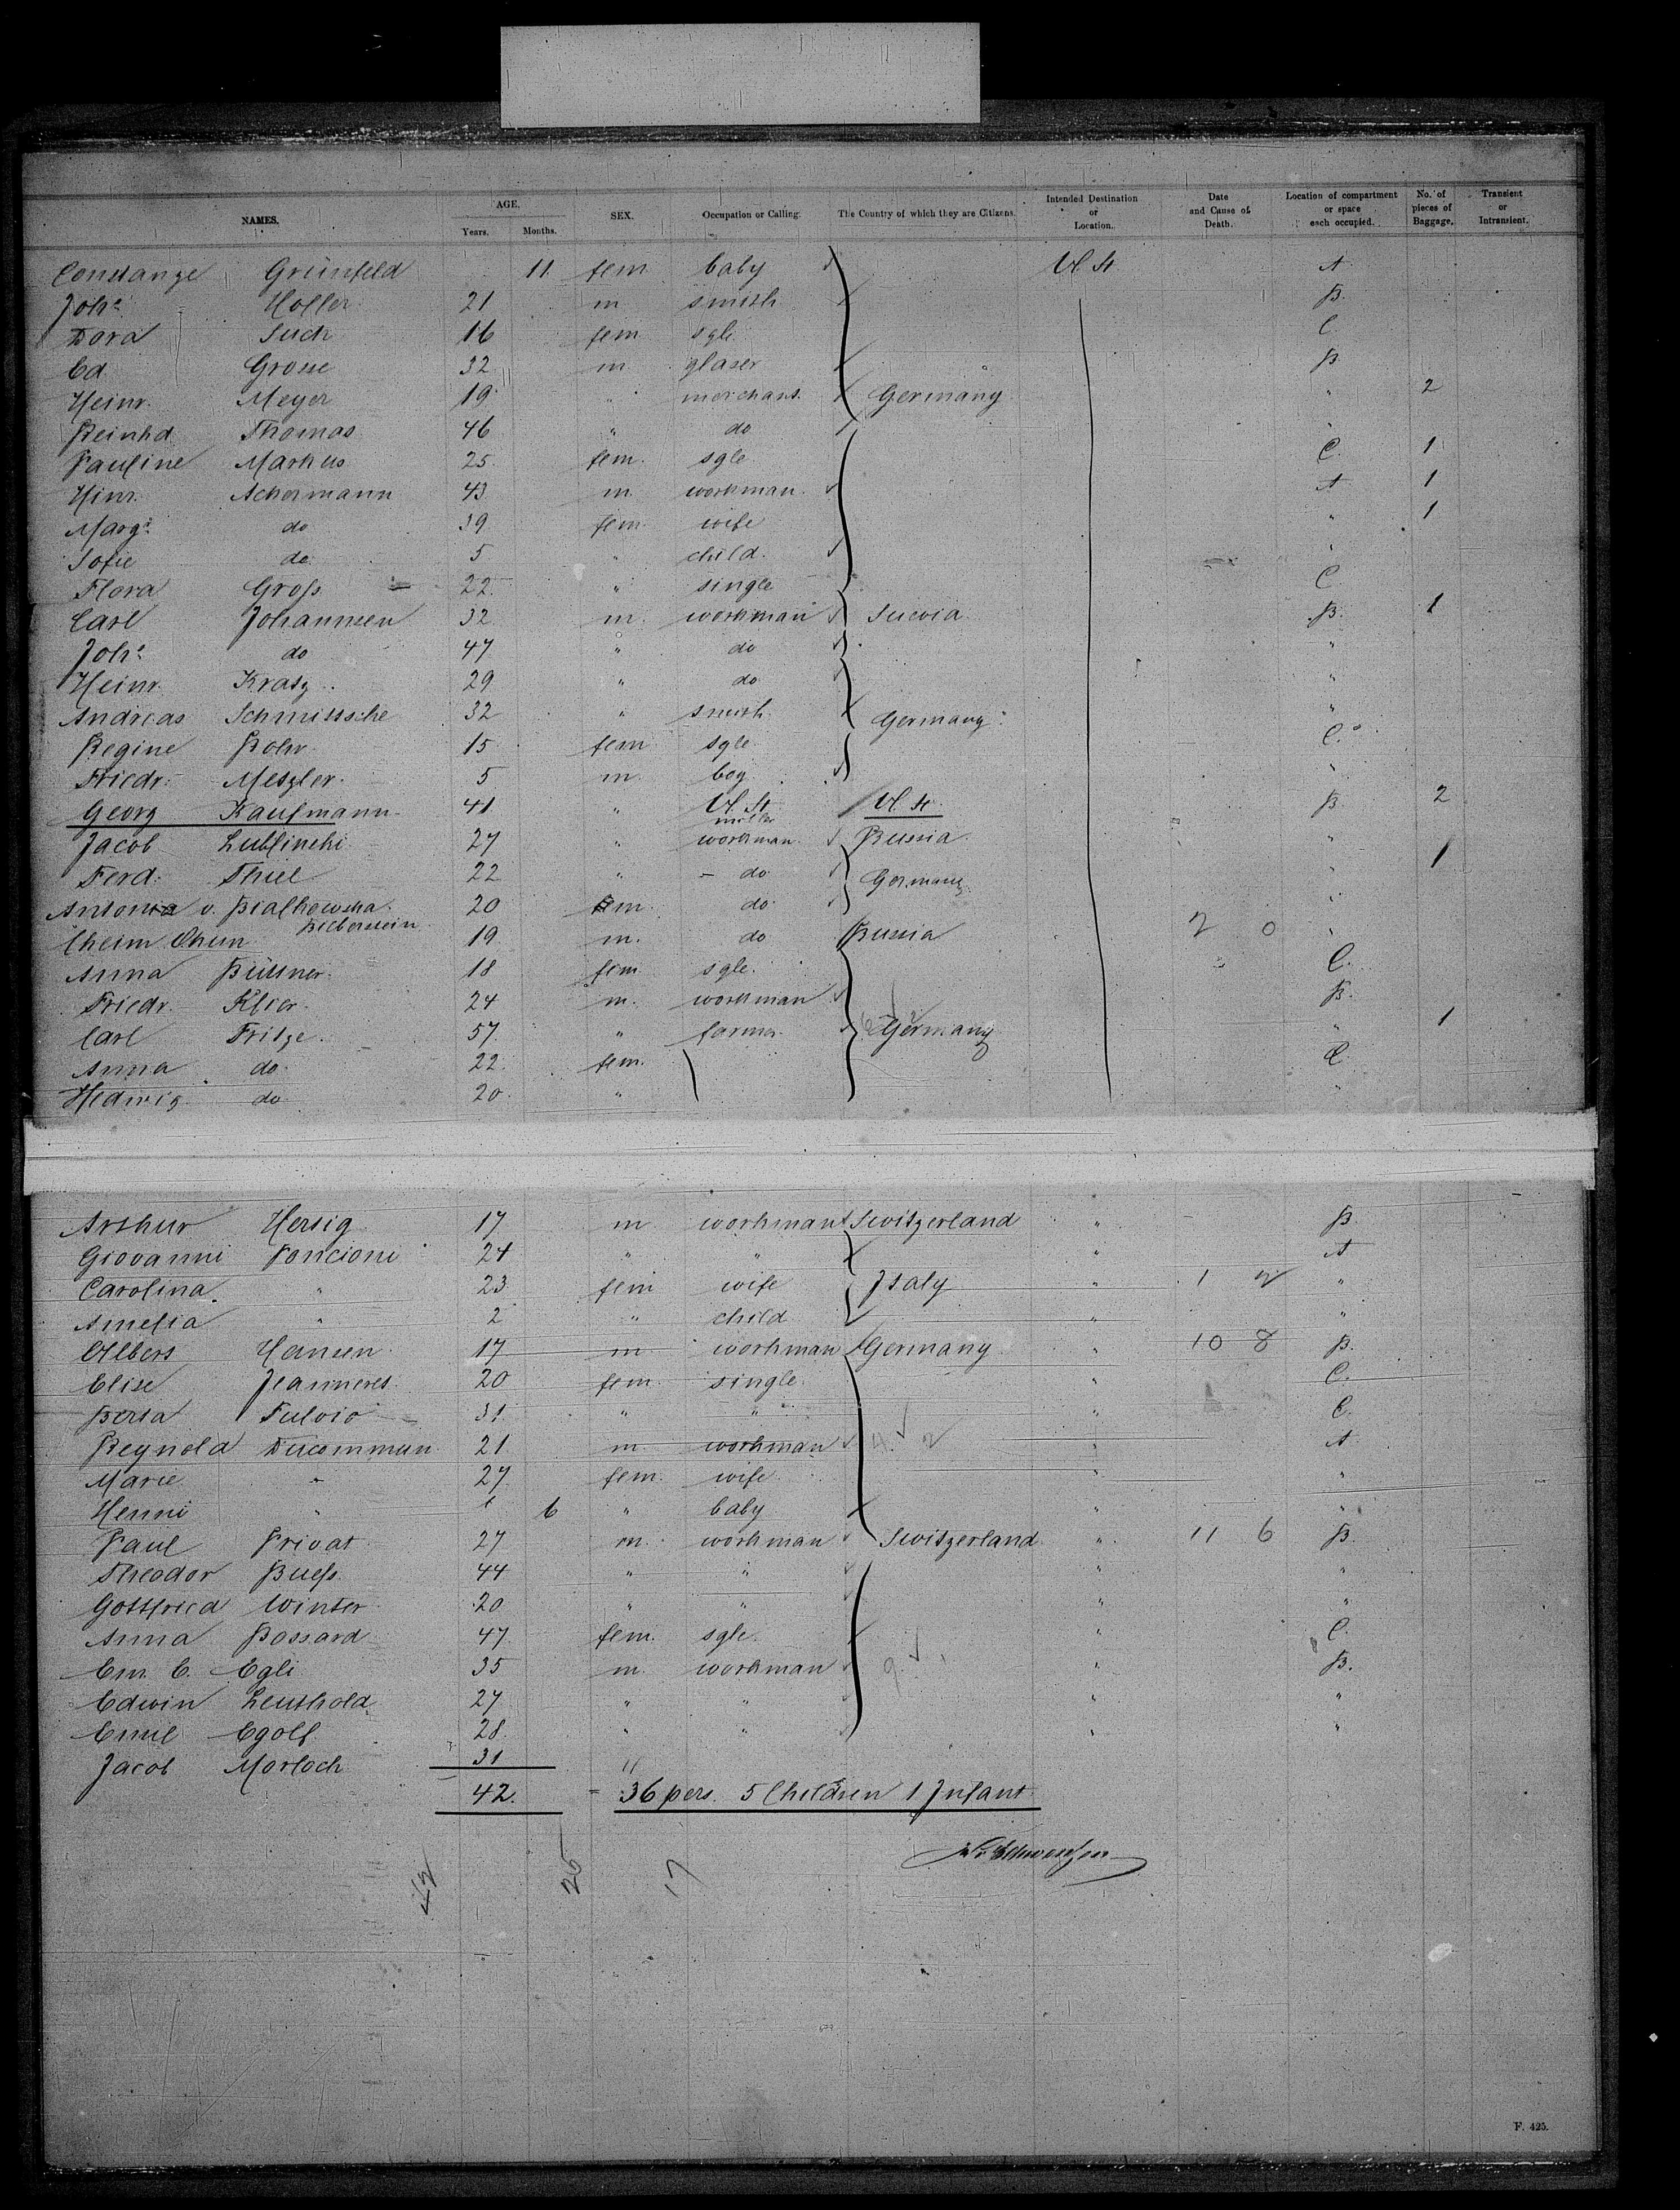 NAMES. AGE. Years. Months. SEX. Occupation or Calling. The Country of which they are Citizens. Intended Destination or Location. Date and Cause of Death. Location of compartment or space each occupied. No. of pieces of Baggage. Transient or Intransient.
Constanze Grünfeld 11 fem baby U. St A
Johs Holler 21 m smith B.
Dora Such 16 fem sgle C.
Ed Grosse 32 m glaser B
Heinr. Meyer 19 " merchant Germany " 2
Reinhd Thomas 46 " do "
Pauline Markus 25 fem. sgle C. 1
Hinr. Achermann 43 m workman A 1
Marga do 39 fem. wife " 1
Sofie do 5 " child "
Flora Groß 22 " single C
Carl Johannsen 32 m. workman Suevia B. 1
Johs do 47 " do "
Heinr. Kratz 29 " do "
Andreas Schmittsche 32 " smith Germany "
Regine Rohr 15 fem sgle C.
Friedr. Metzler 5 m. boy "
Georg Kaufmann 41 " U. St. U. St. B 2
Jacob Lublinski 27 " workman Russia "
Ferd. Thiel 22 " do Germany " 1
Antonia v. Bialkowska 20 fem. do "
Bieberstein
Cheim Chun 19 m. do Russia 2 0 "
Anna Büttner 18 fem sgle. C.
Friedr. Klier 24 m. workman B.
Carl Fritze 57 " farmer Germany " 1
Anna do 22 fem. C
Hedwig do 20 " "
Arthur Hersig 17 m workman Switzerland " B
Giovanni Poncioni 24 " " " A
Carolina " 23 fem wife Italy " 1 "
Amelia " 2 " child " "
Albert Hansen 17 m workman Germany " 10 8 B.
Elise Jeanneret 20 fem. single " C.
Berta Fulvio 31 " " " C.
Reynold Ducommun 21 m workman 4 2 " A
Marie " 27 fem. wife " "
Henni " 6 " baby " "
Paul Privat 27 m. workman Switzerland " 11 6 B.
Theodor Bueß 44 " " " "
Gottfried Winter 20 " " " "
Anna Bossard 47 fem. sgle. " C.
Em. E. Egli 35 m. workman 9 " B.
Edwin Leuthold 27 " " " "
Emil Egolf 28 " " " "
Jacob Morloch 31 "
42. = 36 pers. 5 Children 1 Infant
42 25 17
F. 425.